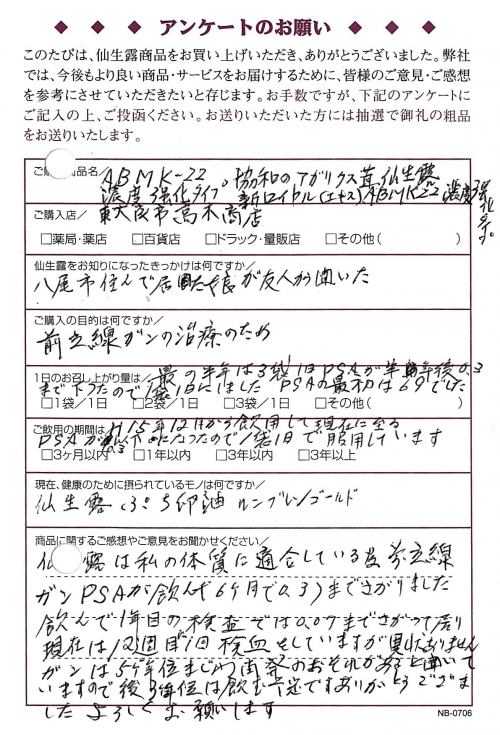 アンケートのお願い
このたびは、仙生露商品をお買い上げいただき、ありがとうございました。弊社
では、今後もより良い商品・サービスをお届けするために、皆様のご意見・ご感想
を参考にさせていただきたいと存じます。お手数ですが、下記のアンケートに
ご記入の上、ご投函ください。お送りいただいた方には抽選で御礼の粗品
をお送りいたします。
ご 商品名/ ABMK-22 協和のアガリクス茸仙生露
濃度強化タイプ。新ロイヤル(エキス)ABMK22 濃度強化タイプ
ご購入店/ 東大阪市高木商店
□薬局・薬店 □百貨店 □ドラック・量販店 □その他( )
仙生露をお知りになったきっかけは何ですか/
八尾市住んで居る娘が友人から聞いた
ご購入の目的は何ですか/
前立線ガンの治療のため
1日のお召し上がり量は/ 最の半年は3袋1日PSAが半年後0.3
まで下ったので1袋1日にしました PSAの最初は69でした
□1袋/1日 □2袋/1日 □3袋/1日 □その他( )
ご飲用の期間は H15年12月から飲用して現在に至る
PSAが 以下になったので1袋1日で服用しています
□3ヶ月以内 □1年以内 □3年以内 □3年以上
現在、健康のために摂られているモノは何ですか/
仙生露 卵油
商品に関するご感想やご意見をお聞かせください/
仙 露は私の体質に適合している 前立線
ガンPSAが飲んで6ケ月で0.3までさがりました
飲んで1年目の検査では0.07までさがって居り
現在は12週目ず1回検血をしていますが異状ありません
ガンは5ケ年位まで 再発のおそれがあると聞いて
いますので後3年位は飲む予定ですありがとうござま
した よろしくお願いします
NB-0706